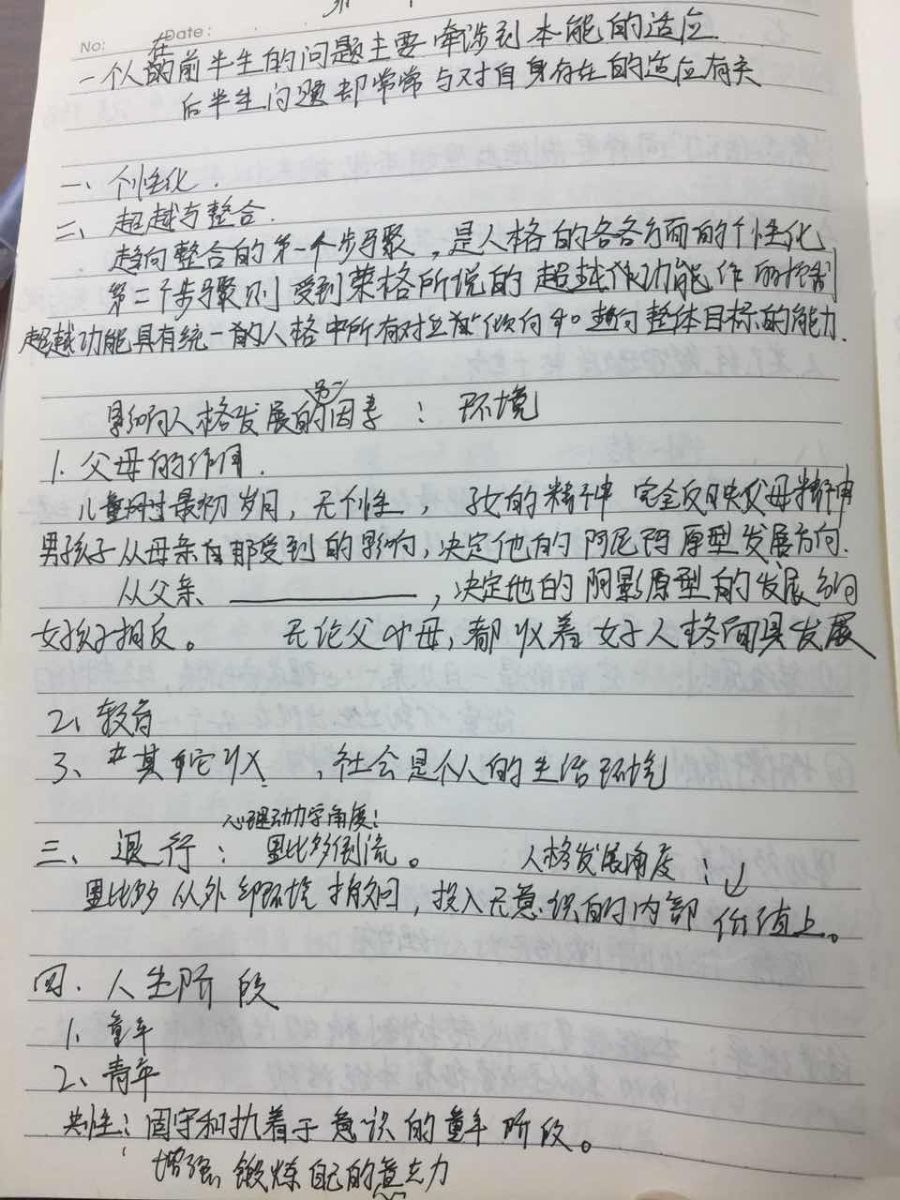 No: Date:
一个人在前半生的问题主要牵涉到本能的适应.
后半生问题却常常与对自身存在的适应有关
一、个性化.
二、超越与整合.
趋向整合的第一个步骤，是人格的各各方面的个性化
第二个步骤则受到荣格所说的超越功能作的控制
超越功能具有统一的人格中所有对立倾向和趋向整体目标的能力.
影响人格发展的因素：环境
1. 父母的作用.
儿童最初岁月，无个性，子女的精神完全反映父母精神
男孩子从母亲那受到的影响，决定他的阿尼玛原型发展方向.
从父亲————，决定他的阴影原型的发展方向
女孩子相反。 无论父母，都以着女子人格面具发展
2、教育
3、其它 ，社会是个人的生活环境
心理动力学角度！
三、退行：里比多倒流。 人格发展角度：
里比多从外部环境撤回，投入无意识的内部价值上。
四、人生阶段
1、童年
2、青年
共性：固守和执着于意识的童年阶段。
增强、锻炼自己的意志力